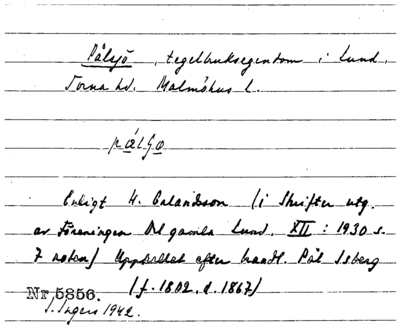 Pålsjö, tegelbruksegendom i Lund,
Torna hd. Malmöhus l.
pålʃo
Enligt H. Erlandsson (i Skrifter utg.
av Föreningen Det gamla Lund. XII : 1930 s.
7 noten) uppkallat efter handl. Pål Isberg
(f. 1802. d. 1867)
Nr 5856.
I. Ingers 1942.